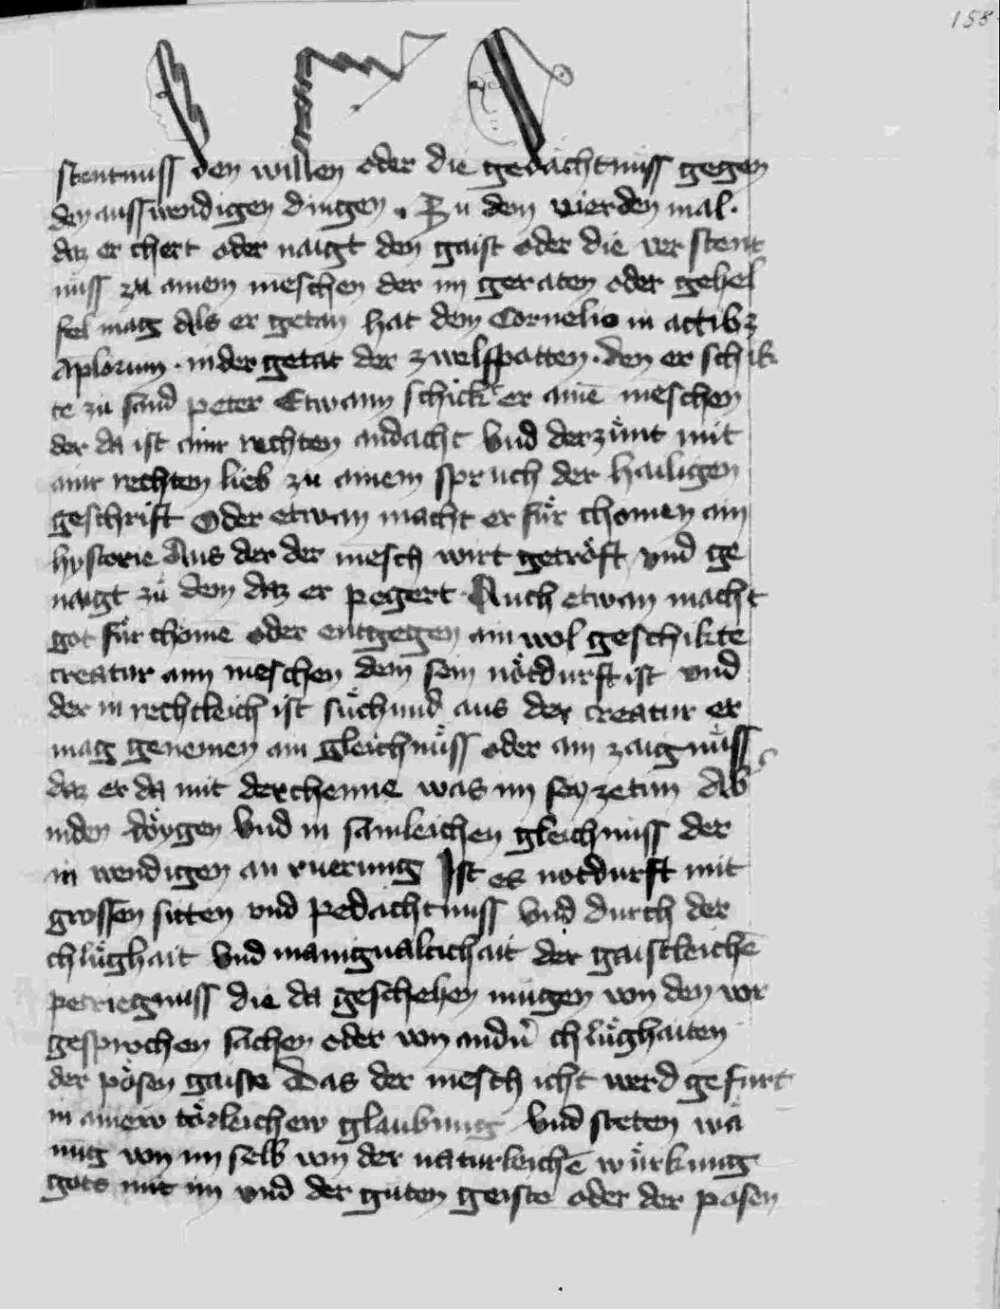 158
stentnuss den willen oder die gedächtnuss gegen
den ausswendigen dingen. Zu dem vierden mal.
daz er chert oder naigt den gaist oder die verstent
nuss zu ainem meschen der im geraten oder gehel
fel mag Als er getan hat dem Cornelio in actibz
aplorum. in der getat der zwelfpatten. den er schik
te zu sand peter Etwann schickt er aine meschen
der da ist ainer rechten andacht vnd derzünt mit
ainer rechten lieb zu ainem spruch der hailigen
geschrift Oder etwan macht er für chomen ain
hystorie Aus der der mesch wirt getröst vnd ge
naigt zu dem daz er pegert. Auch etwan macht
got für chome oder entgegen ain wol geschikte
creatur aim meschen dem sein nötdurft ist vnd
der in rechtleich ist süchund aus der creatur er
mag genemen ain gleichnüss oder ain zaignüss
daz er da mit derchenne was im sey zetun Ab
in den vnd in samleichen gleichnuss der
in wendigen an ruerung Ist es notdurft mit
grossen sitten vnd pedachtnuss vnd durch der
chlüghait vnd manigualtichait der gaistleichē
petriegnuss die da geschehen mugen von den vor
gesprochen sachen oder von andn̄ chlüghaiten
der pösen gaiste Das der mesch icht werd gefürt
in ainew törleichew glaubung vnd steten wa
nung von im selb von der naturleichē würkung
gots mit im vnd der guten geiste oder der posen